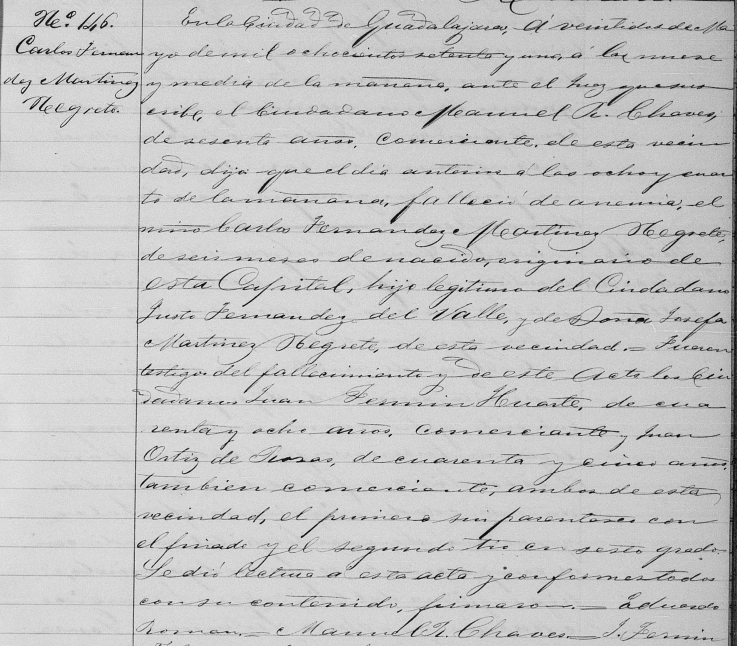 No. 146.
Carlos Fernan
dez Martinez
Negrete.
En la Ciudad de Guadalajara, á veintidos de Ma
yo de mil ochocientos setenta y uno, á las nueve
y media de la mañana, ante el Juez que sus
cribe, el Ciudadano Manuel R. Chaves,
de sesenta años, comerciante, de esta vecin
dad, dijo que el dia anterior á las ocho y cuar
to de la mañana, falleció de anemia, el
niño Carlos Fernandez Martinez Negrete,
de seis meses de nacido, originario de
esta Capital, hijo legitimo del Ciudadano
Justo Fernandez del Valle, y de Doña Josefa
Martinez Negrete, de esta vecindad. = Fueron
testigos del fallecimiento y de este Acto los Ciu
dadanos Juan Fermin Huarte, de cua
renta y ocho años, comerciante y Juan
Ortiz de Rosas, de cuarenta y cinco años,
tambien comerciante, ambos de esta
vecindad, el primero sin parentesco con
el finado y el segundo tio en sesto grado.
Se dió lectura a esta acta y conformes todos
con su contenido, firmaron. = Eduardo
Roman. = Manuel R. Chaves. = J. Fermin